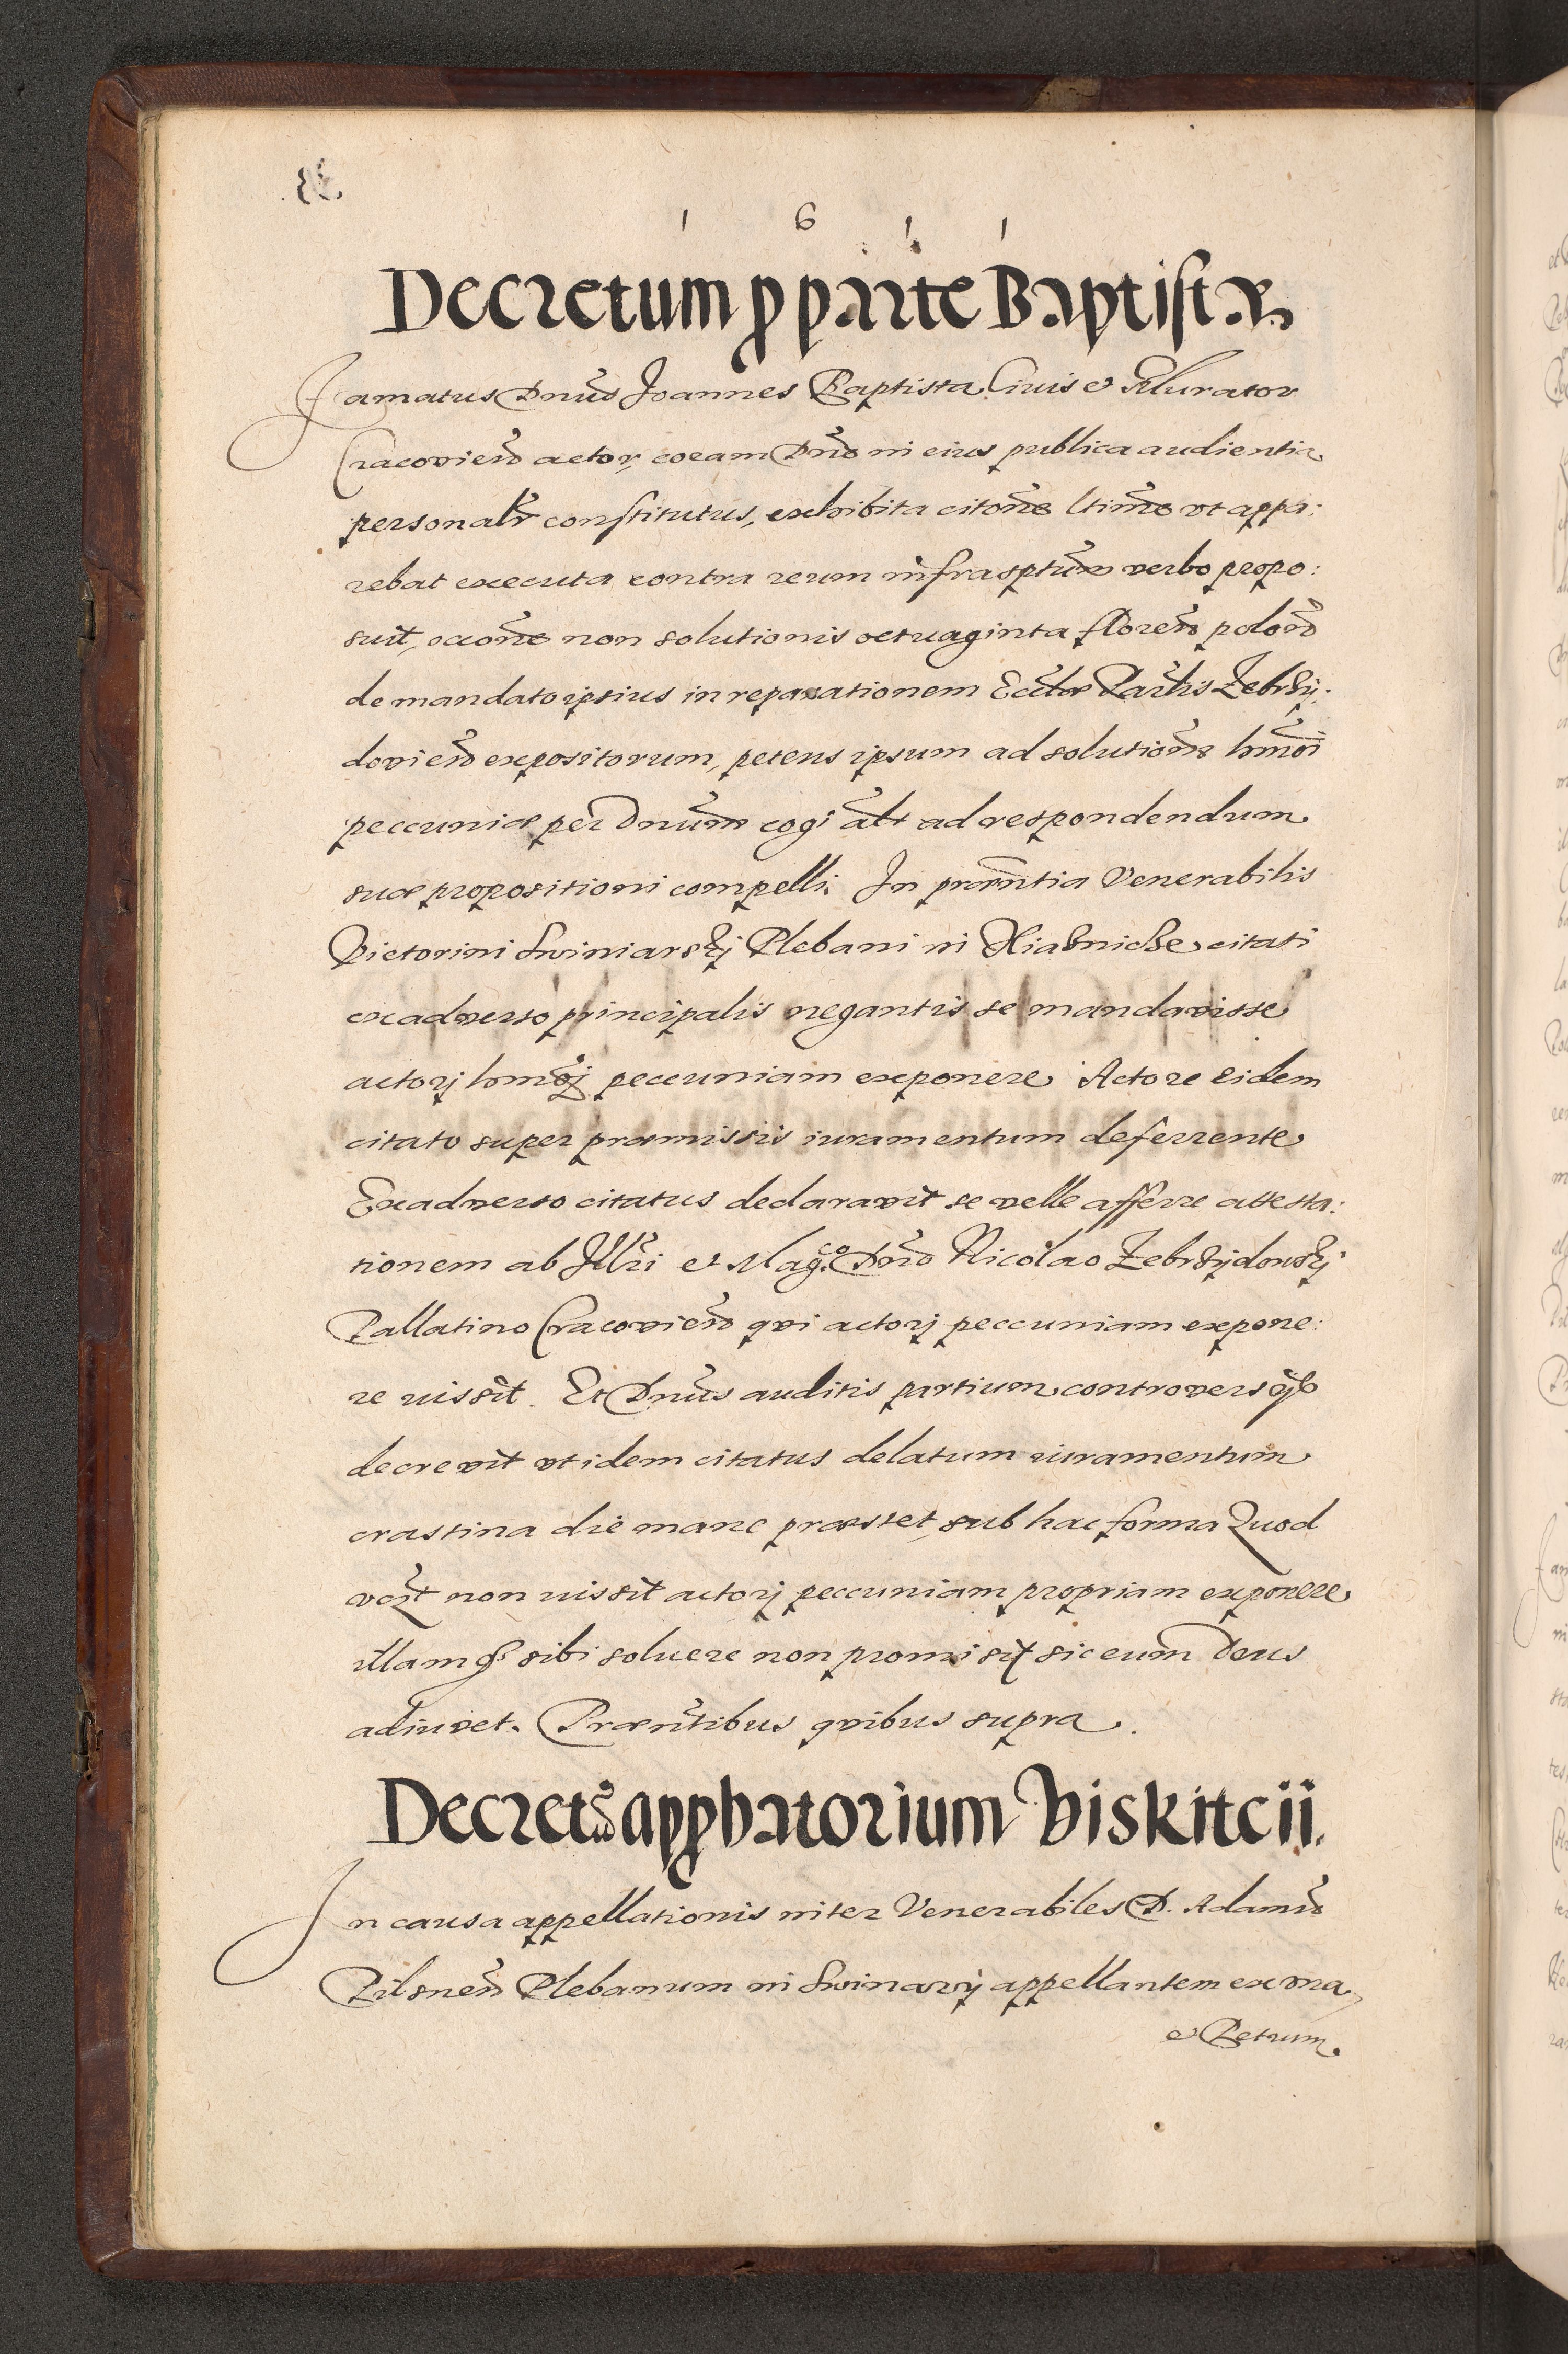 1 6 1 1
Decretum p parte Baptistæ
Famatus Dnus Joannes Baptista Ciuis et Murator
Cracovien actor, coram Dno in eius publica audientia
personalr constitutus, exhibita citone ltime vt appa:
rebat executa contra reum infrasptum verbo propo:
suit, occone non solutionis octuaginta floren polon
de mandato ipsius in reparationem Ecclæ Parlis Zebrzÿ:
dovien expositorum, petens ipsum ad solutione hmoi
peccuniæ per Dnum cogi alt ad respondendum
suæ propositioni compelli. In præntia Venerabilis
Victorini Swiniarskj Plebani in citati
ex adverso principalis negantis se mandavisse
actorj hmoj peccuniam exponere Actore eidem
citato super præmissis iuramentum deferrente
Ex adverso citatus declaravit se velle afferre attesta:
tionem ab Illri et Mag.co Dno Nicolao Zebrzÿdowskj
Pallatino Cracovien qvi actorj peccuniam expone:
re iussit. Et Dnus auditis partium controversijs
decrevit vt idem citatus delatum iuramentum
crastina die mane præstet, sub hac forma Quod
non iussit actorj peccuniam propriam exponere
illamq3 sibi soluere non promisit sic eum Deus
adiuvet. Præntibus qvibus supra.
Decretu appbatorium Viskitcii.
In causa appellationis inter Venerabiles D. Adamu
Pilsnen Plebanum in Swinary appellantem ex vna
et Petrum.